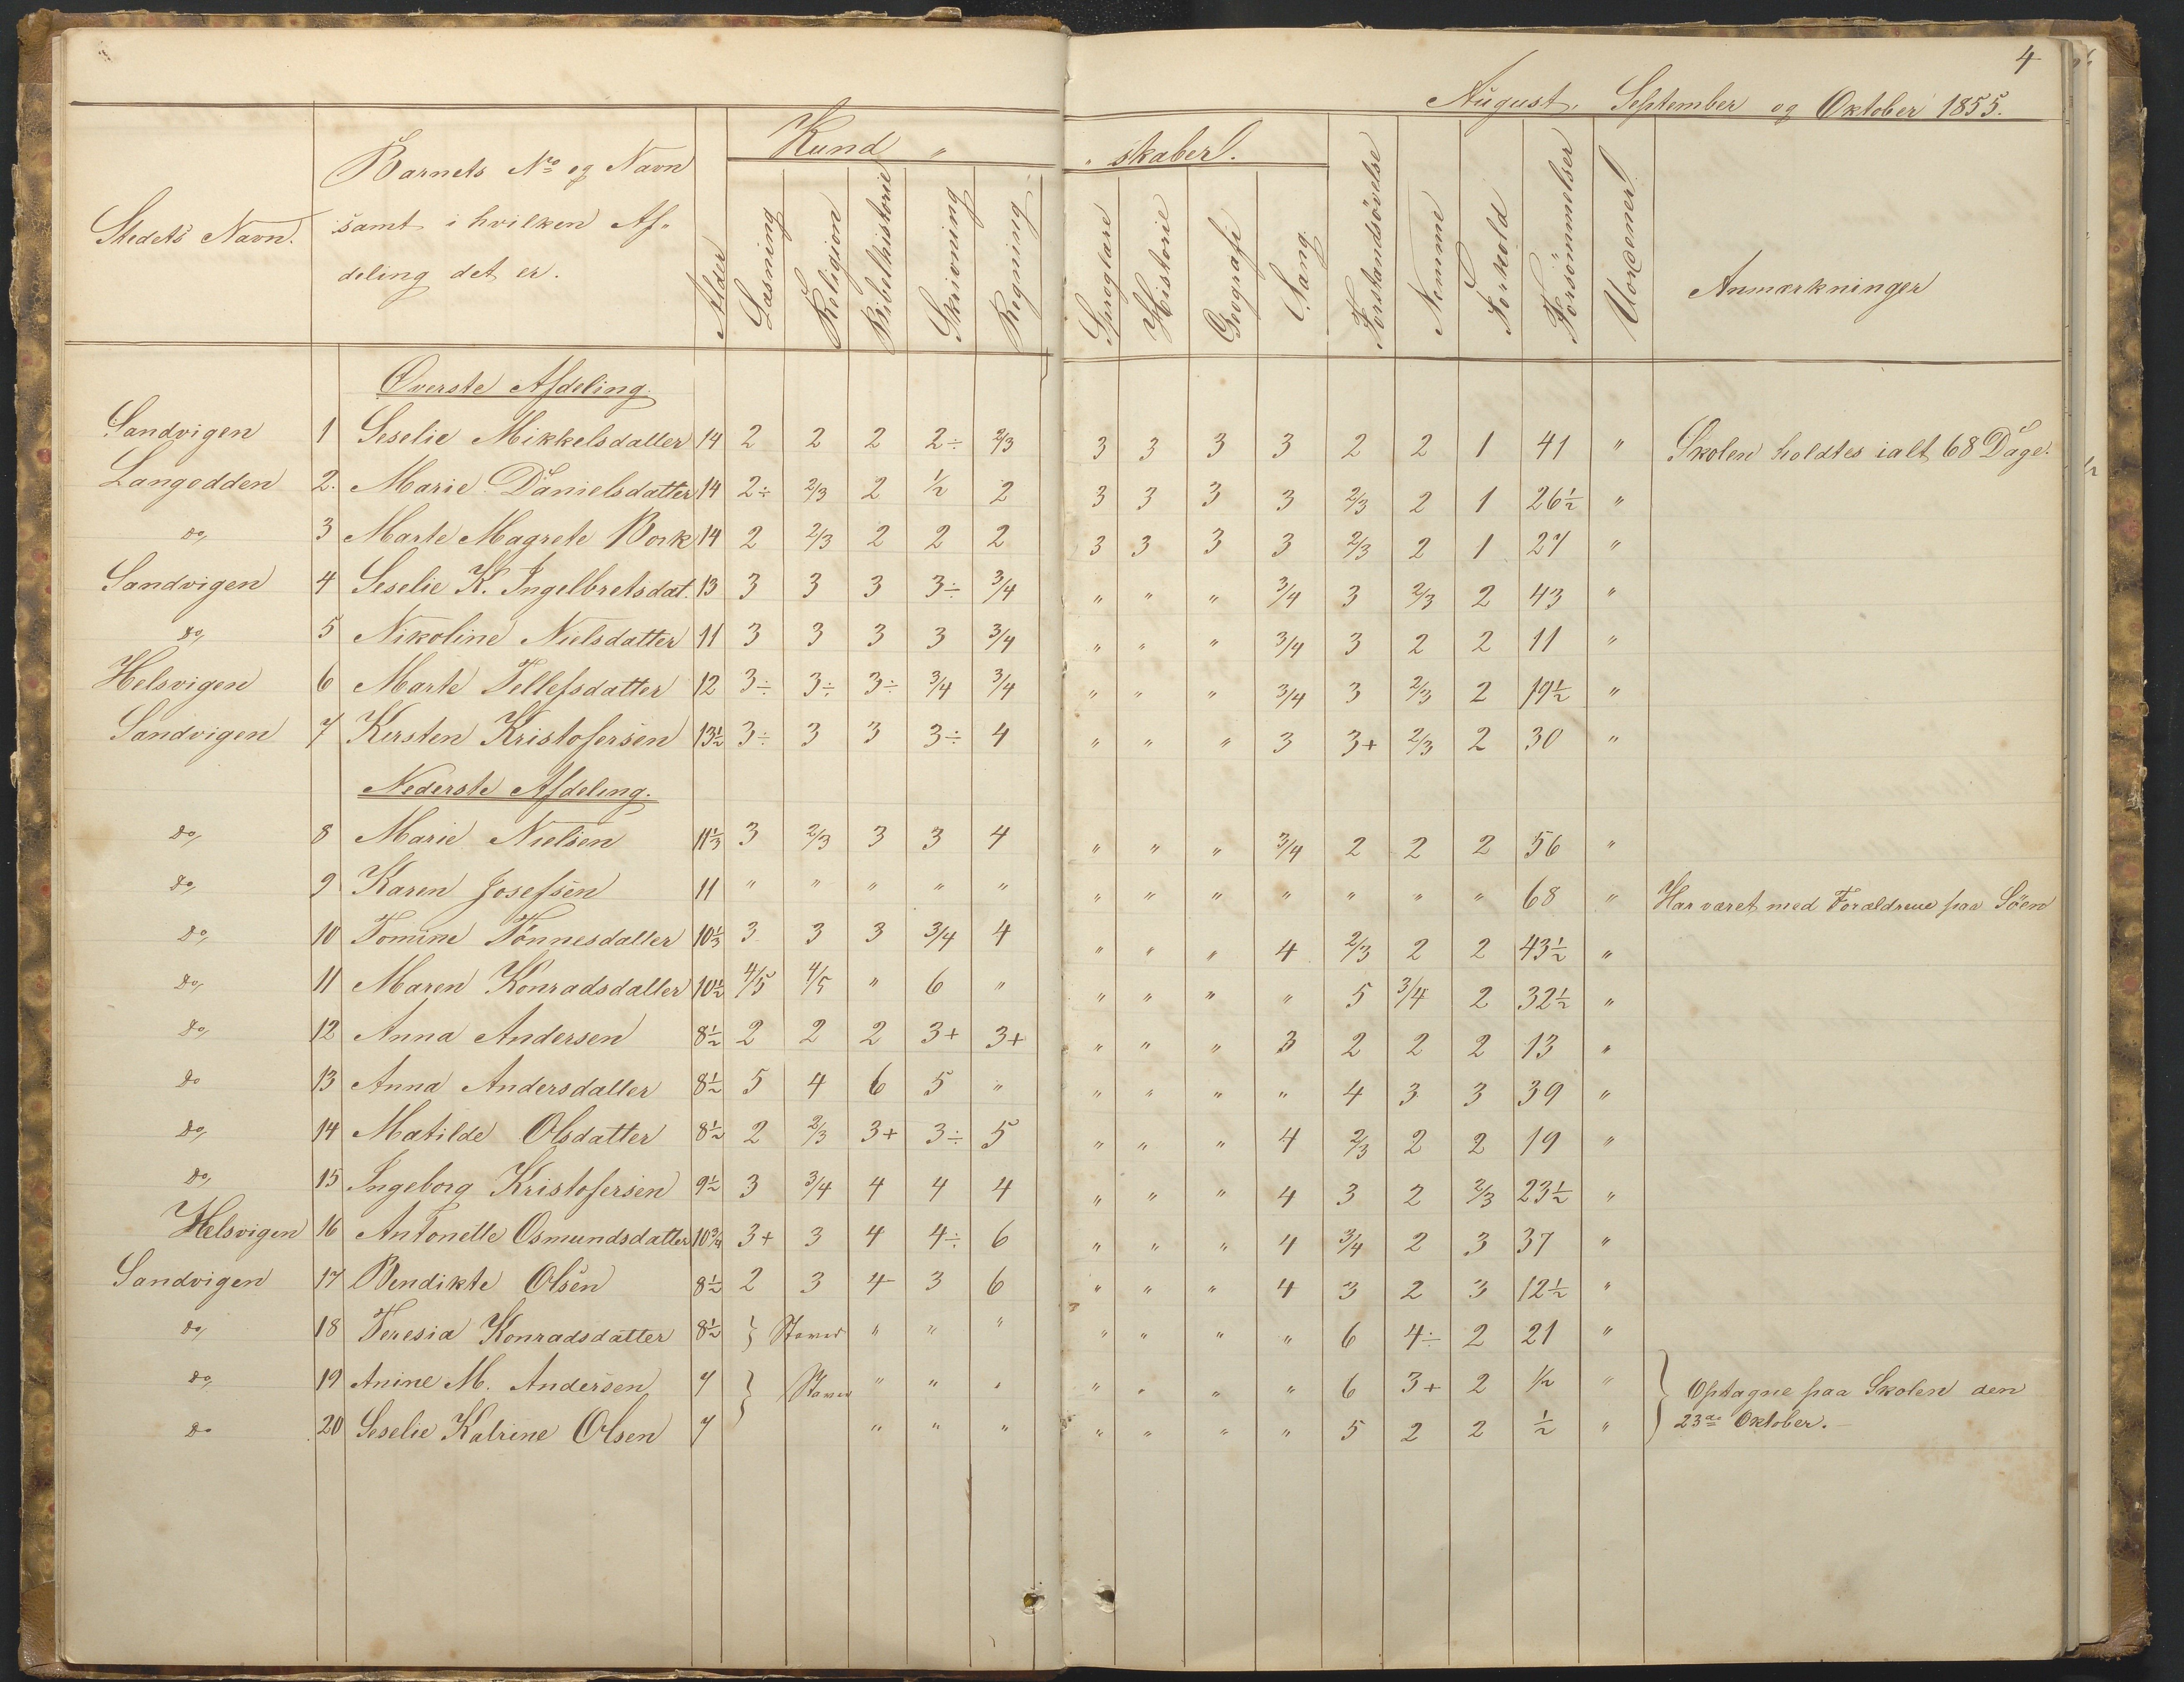 4
August, September og Oktober 1855.
Stedets Navn. | Barnets No og Navn samt i hvilken Af- deling det er. | Alder | Kund " " skaber. | Forstandsøvelse | Nemme | Forhold | Forsömmelser | Uordener | Anmærkninger
Læsning | Religion | Bibelhistorie | Skrivning | Regning | Sproglære | Historie | Geografi | Sang
Øverste Afdeling.
Sandvigen 1 Seselie Mikkelsdatter 14 2 2 2 2÷ 2/3 3 3 3 3 2 2 1 41 " Skolen holdtes ialt 68 Dage.
Langodden 2. Marie Danielsdatter 14 2÷ 2/3 2 1/2 2 3 3 3 3 2/3 2 1 26 1/2 "
do, 3 Marte Magrete Bork 14 2 2/3 2 2 2 3 3 3 3 2/3 2 1 27 "
Sandvigen 4 Seselie K. Ingelbretsdat. 13 3 3 3 3÷ 3/4 " " " 3/4 3 2/3 2 43 "
do, 5 Nikoline Nielsdatter 11 3 3 3 3 3/4 " " " 3/4 3 2 2 11 "
Helsvigen 6 Marte Tellefsdatter 12 3÷ 3÷ 3÷ 3/4 3/4 " " " 3/4 3 2/3 2 19 1/2 "
Sandvigen 7 Kersten Kristofersen 13 1/2 3÷ 3 3 3÷ 4 " " " 3 3+ 2/3 2 30 "
Nederste Afdeling.
do, 8 Marie Nielsen 11 1/3 3 2/3 3 3 4 " " " 3/4 2 2 2 56 "
do, 9 Karen Josefsen 11 " " " " " " " " " " " " 68 " Har været med Forældrene paa Söen
do, 10 Tomine Tönnesdatter 10 1/3 3 3 3 3/4 4 " " " 4 2/3 2 2 43 1/2 "
do, 11 Maren Konradsdatter 10 1/2 4/5 4/5 " 6 " " " " " 5 3/4 2 32 1/2 "
do, 12 Anna Andersen 8 1/2 2 2 2 3+ 3+ " " " 3 2 2 2 13 "
do 13 Anna Andersdatter 8 1/2 5 4 6 5 " " " " " 4 3 3 39 "
do, 14 Matilde Olsdatter 8 1/2 2 2/3 3+ 3÷ 5 " " " 4 2/3 2 2 19 "
do, 15 Ingeborg Kristofersen 9 1/2 3 3/4 4 4 4 " " " 4 3 2 2/3 23 1/2 "
Helsvigen 16 Antonette Osmundsdatter 10 3/4 3+ 3 4 4÷ 6 " " " 4 3/4 2 3 37 "
Sandvigen 17 Bendikte Olsen 8 1/2 2 3 4 3 6 " " " 4 3 2 3 12 1/2 "
do, 18 Teresia Konradsdatter 8 1/2 } Staver " " " " " " " 6 4÷ 2 21 "
do, 19 Anine M. Andersen 7 } Staver " " " " " " " 6 3+ 2 1/2 " } Optagne paa Skolen den
do 20 Seselie Katrine Olsen 7 " " " " " " " 5 2 2 1/2 " 23de Oktober.